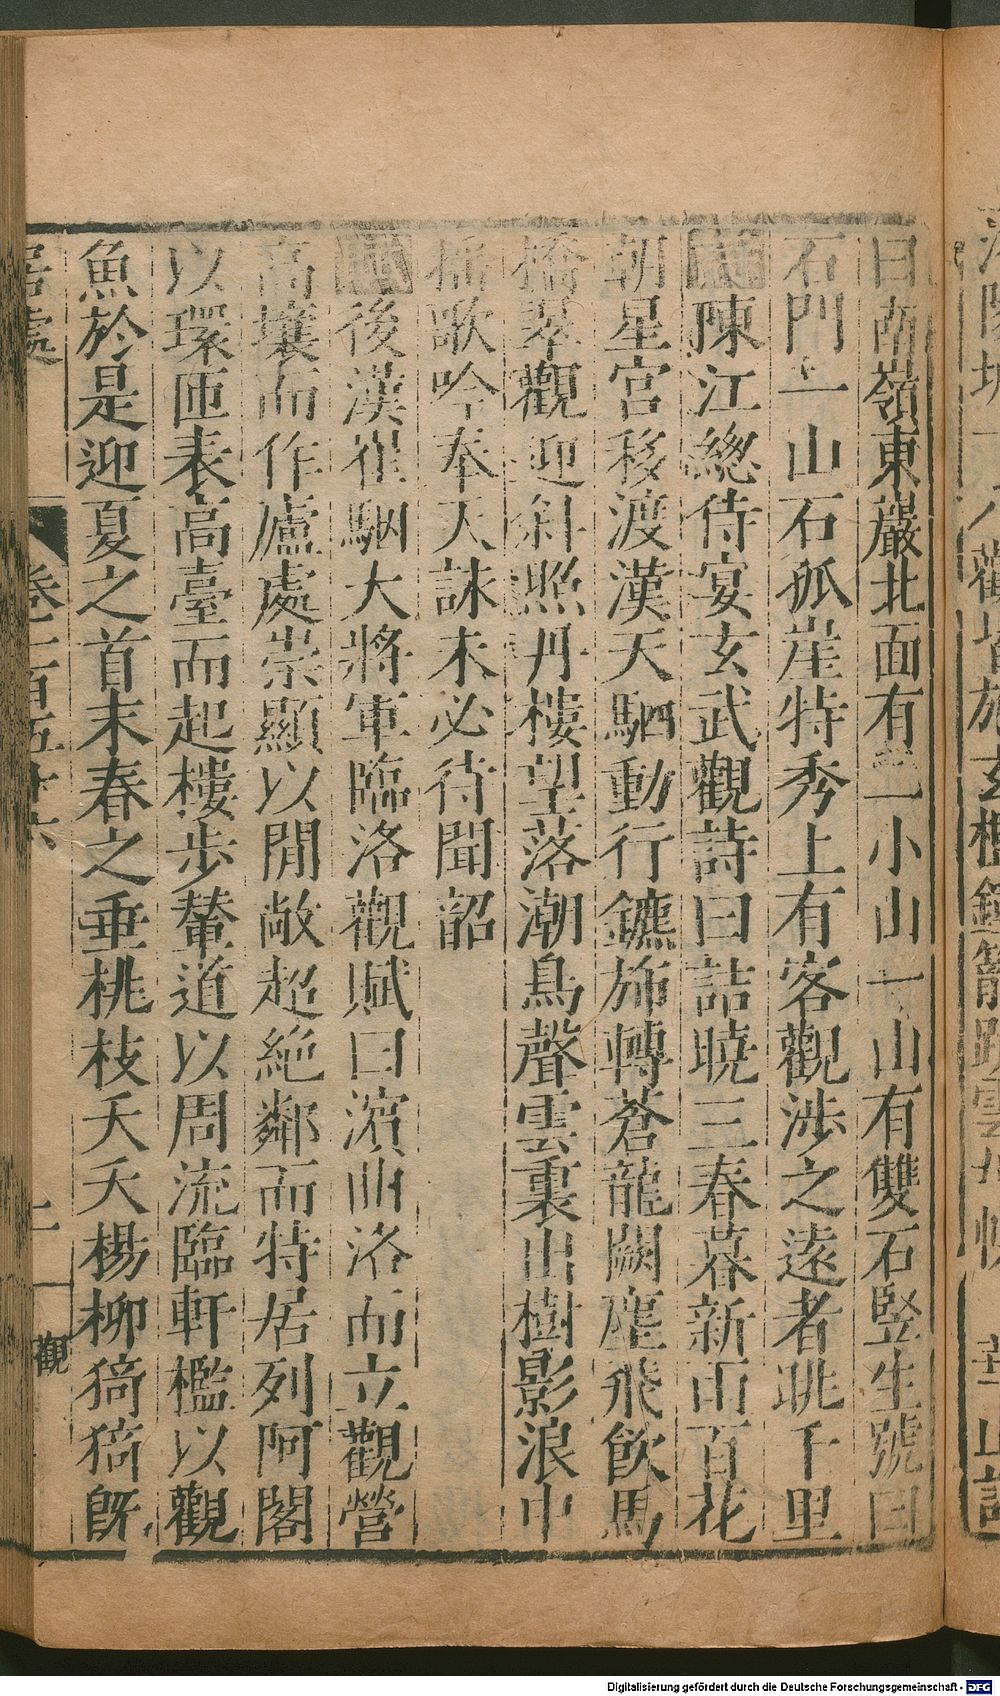 曰南嶺東巖北面有一小山一山有雙石竪生號曰
石門一山石孤崖特秀上有客觀涉之遠者眺千里
詩陳江總侍宴玄武觀詩曰詰曉三春暮新雨百花
朝星宮移渡漢天駟動行鑣旆轉蒼龍闕塵飛飲馬
橋翠觀迎斜照丹樓望落潮鳥聲雲裏出樹影浪中
搖歌吟奉天詠未必待聞韶
賦後漢崔駰大將軍臨洛觀賦曰濱曲洛而立觀營
高壤而作廬處崇顯以閒敞超絕鄰而特居列阿閣
以環匝表高臺而起樓步輦道以周流臨軒檻以觀
魚於是迎夏之首末春之垂桃枝夭夭楊柳猗猗旣
居處
卷二百五十六
二
觀
Digitalisierung gefördert durch die Deutsche Forschungsgemeinschaft - DFG